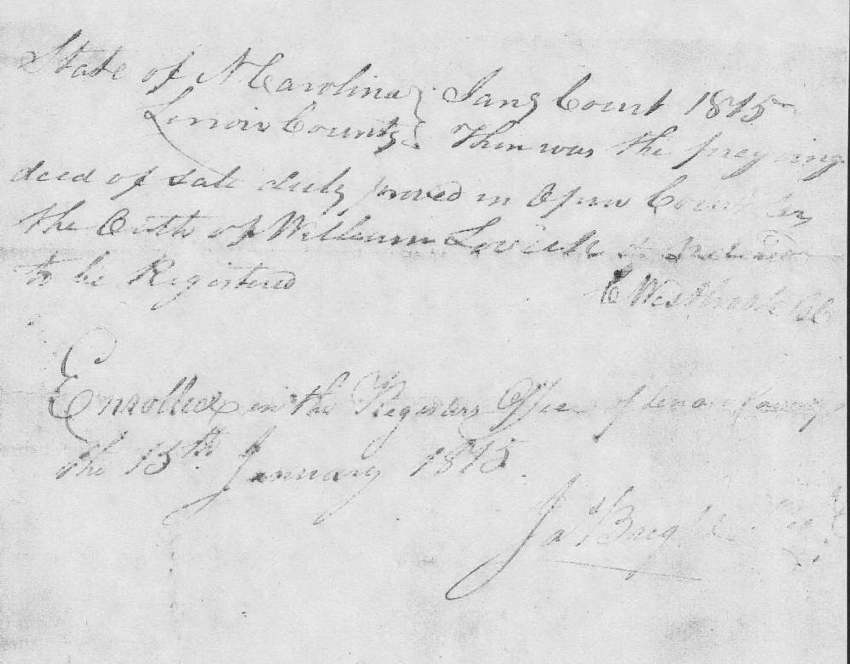 State of N Carolina } Jany Court 1815
Lenoir County } Then was the foregoing
deed of Sale duly proved in Open Court by
the Oath of William Lovick & ordered
to be Registered
C Westbrook Clk
Enrolled in the Registers Office of Lenoir County
the 15th January 1815
Jas Bag